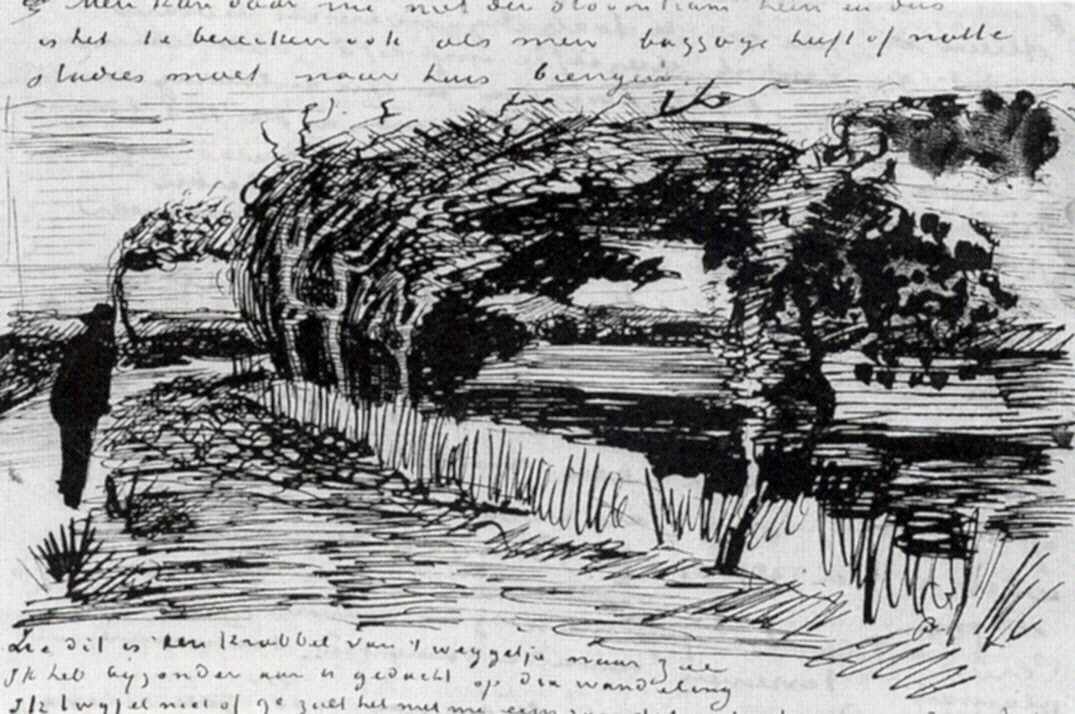 Men kan daar nu met den stoomtram heen en dus
is het te bereiken ook als men baggage heeft of natte
studies moet naar huis brengen.
Zie dit is een krabbel van 't weggetje naar zee
Ik heb bijzonder aan U gedacht op die wandeling
Ik twyfel niet of ge zult het met me eens